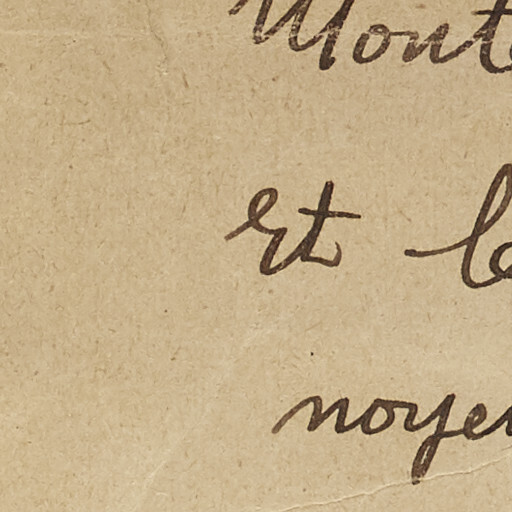 Mont
Et l
noye